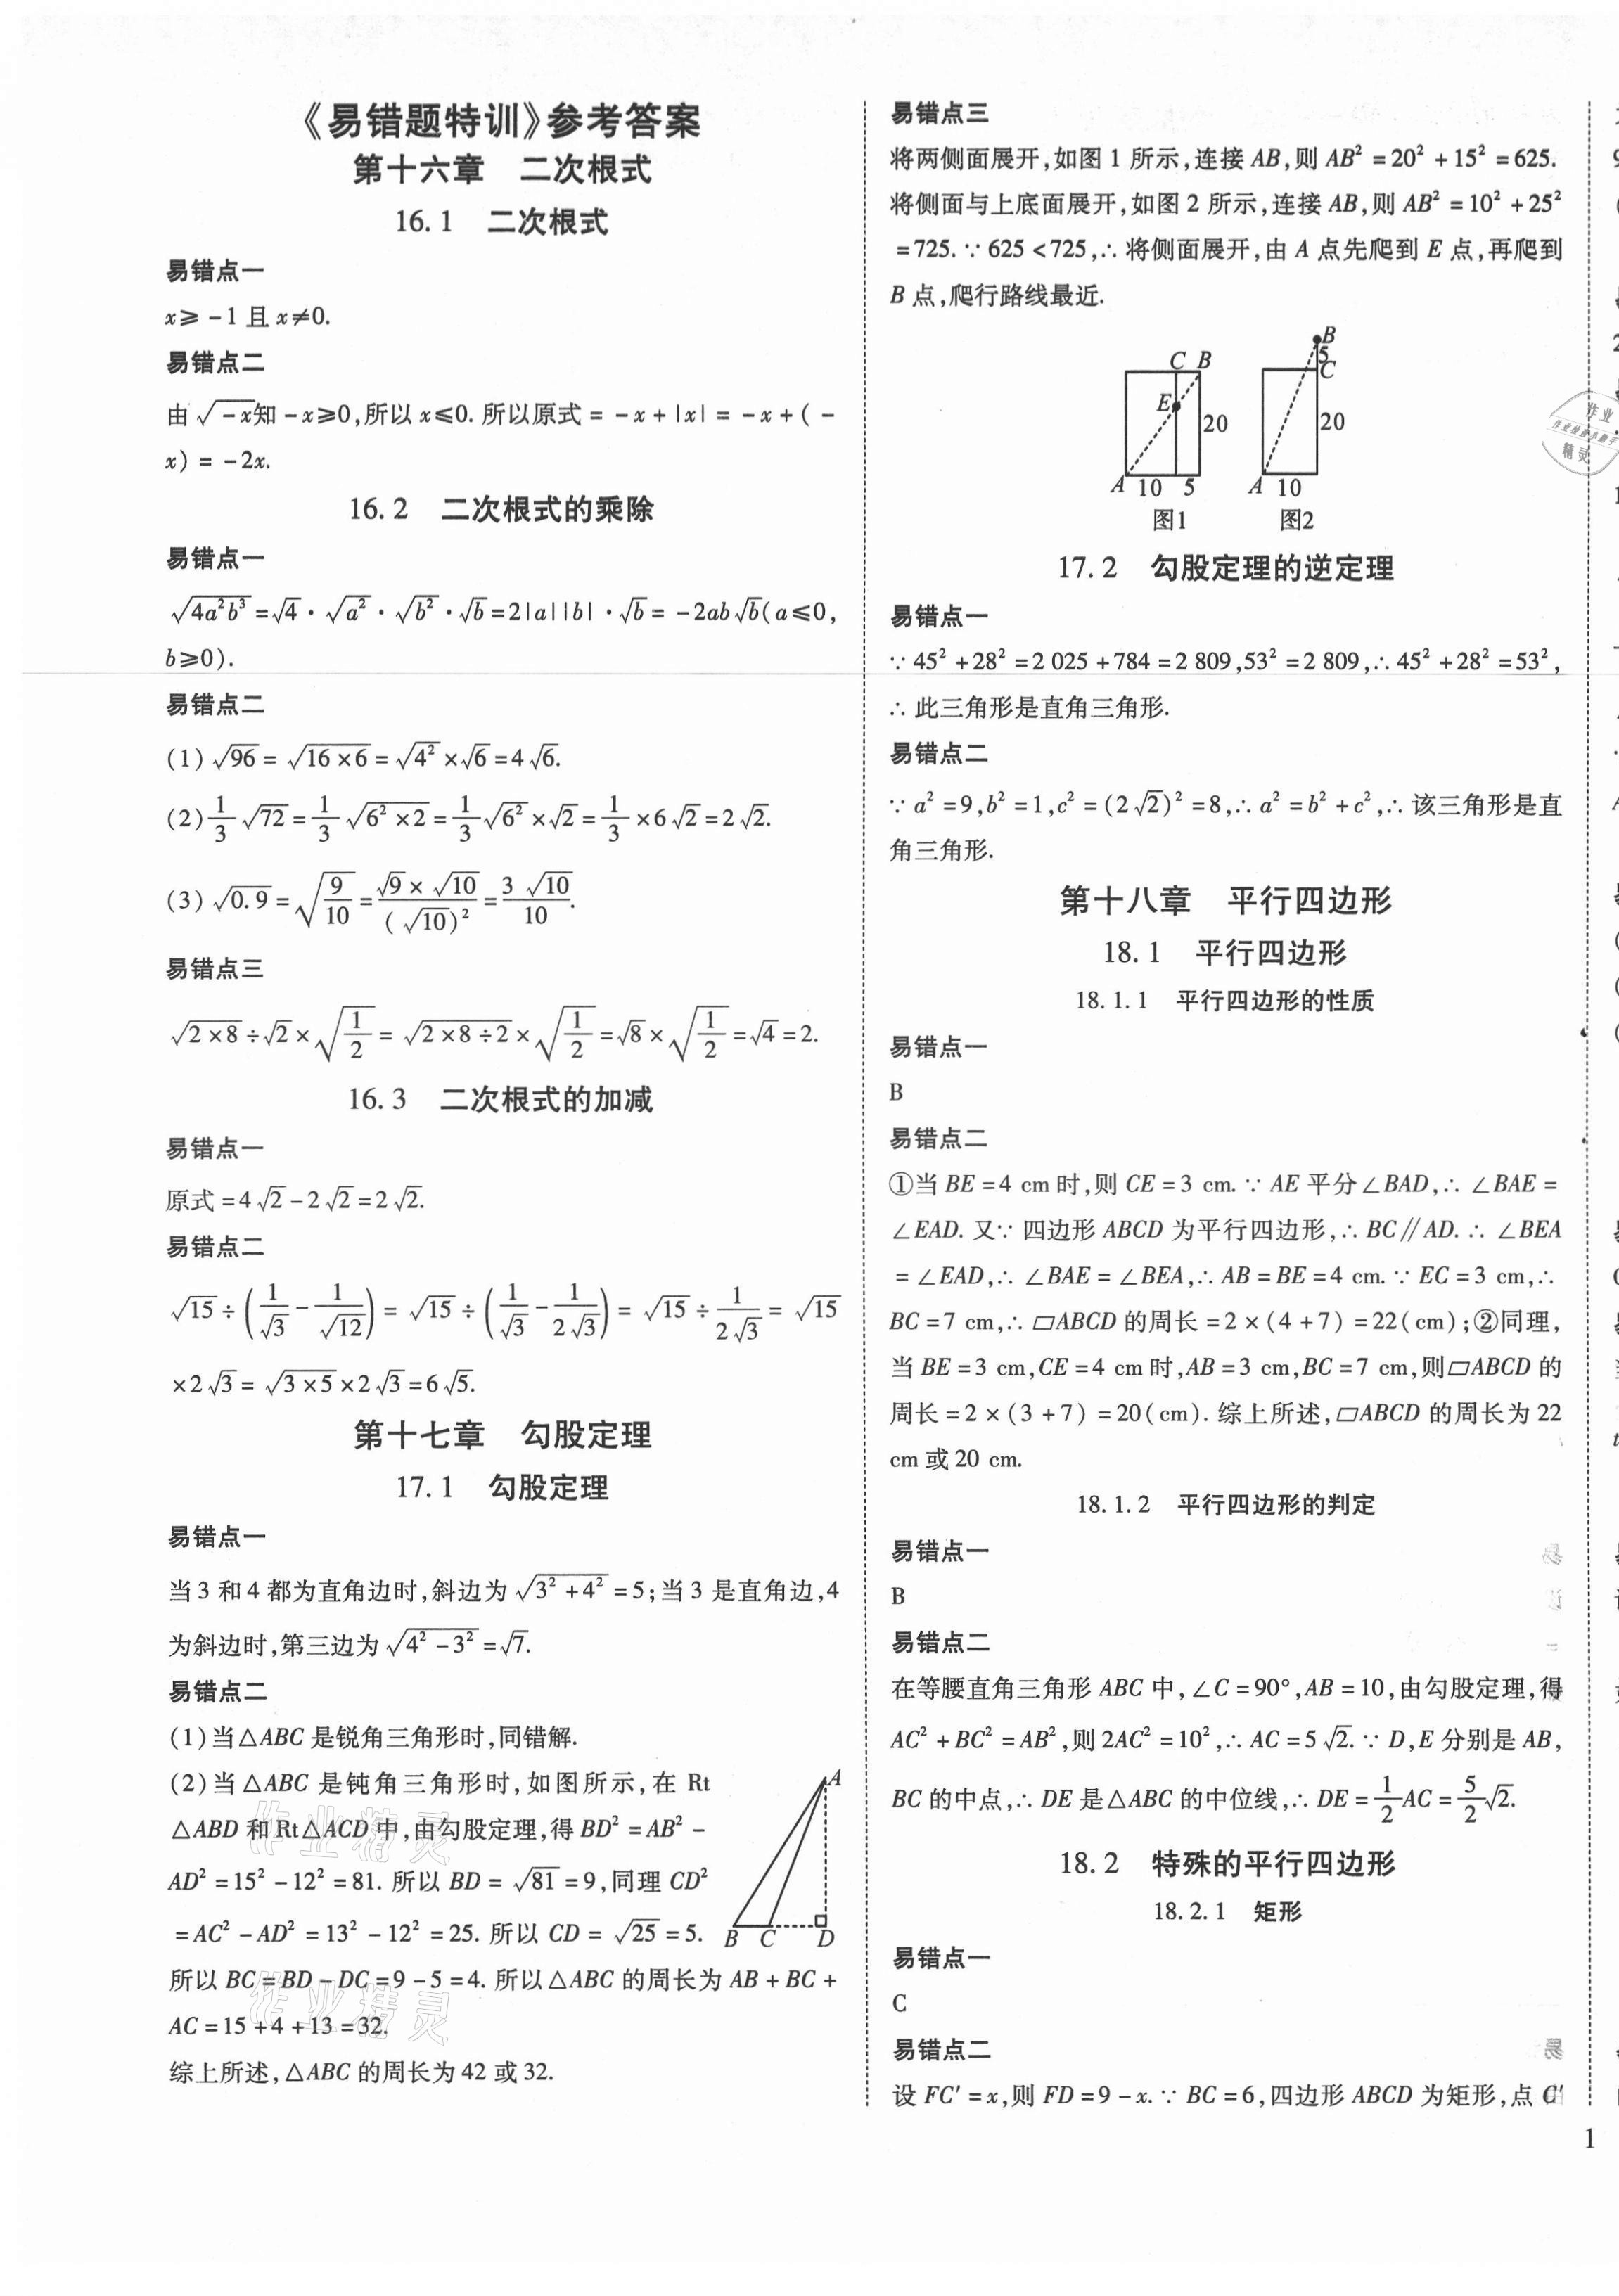 《易错题特训》参考答案
第十六章 二次根式
16.1 二次根式
易错点一
x≥-1且x≠0.
易错点二
由√(-x)知-x≥0,所以x≤0.所以原式=-x+|x|=-x+(-
x)=-2x.
16.2 二次根式的乘除
易错点一
√(4a²b³)=√4·√(a²)·√(b²)·√b=2|a||b|·√b=-2ab√b(a≤0,
b≥0).
易错点二
(1)√96=√(16×6)=√(4²)×√6=4√6.
(2)1/3√72=1/3√(6²×2)=1/3√(6²)×√2=1/3×6√2=2√2.
(3)√0.9=√(9/10)=(√9×√10)/(√10)²=3√10/10.
易错点三
√(2×8)÷√2×√(1/2)=√(2×8÷2)×√(1/2)=√8×√(1/2)=√4=2.
16.3 二次根式的加减
易错点一
原式=4√2-2√2=2√2.
易错点二
√15÷(1/√3-1/√12)=√15÷(1/√3-1/(2√3))=√15÷1/(2√3)=√15
×2√3=√(3×5)×2√3=6√5.
第十七章 勾股定理
17.1 勾股定理
易错点一
当3和4都为直角边时,斜边为√(3²+4²)=5;当3是直角边,4
为斜边时,第三边为√(4²-3²)=√7.
易错点二
(1)当△ABC是锐角三角形时,同错解.
(2)当△ABC是钝角三角形时,如图所示,在Rt
△ABD和Rt△ACD中,由勾股定理,得BD²=AB²-
AD²=15²-12²=81.所以BD=√81=9,同理CD²
=AC²-AD²=13²-12²=25.所以CD=√25=5.
所以BC=BD-DC=9-5=4.所以△ABC的周长为AB+BC+
AC=15+4+13=32.
综上所述,△ABC的周长为42或32.
A
B C D
易错点三
将两侧面展开,如图1所示,连接AB,则AB²=20²+15²=625.
将侧面与上底面展开,如图2所示,连接AB,则AB²=10²+25²
=725.∵625<725,∴将侧面展开,由A点先爬到E点,再爬到
B点,爬行路线最近.
C B
E
20
A 10 5
图1
B
5
C
20
A 10
图2
17.2 勾股定理的逆定理
易错点一
∵45²+28²=2 025+784=2 809,53²=2 809,∴45²+28²=53²,
∴此三角形是直角三角形.
易错点二
∵a²=9,b²=1,c²=(2√2)²=8,∴a²=b²+c²,∴该三角形是直
角三角形.
第十八章 平行四边形
18.1 平行四边形
18.1.1 平行四边形的性质
易错点一
B
易错点二
①当BE=4 cm时,则CE=3 cm.∵AE平分∠BAD,∴∠BAE=
∠EAD.又∵四边形ABCD为平行四边形,∴BC∥AD.∴∠BEA
=∠EAD,∴∠BAE=∠BEA,∴AB=BE=4 cm.∵EC=3 cm,∴
BC=7 cm,∴▱ABCD的周长=2×(4+7)=22(cm);②同理,
当BE=3 cm,CE=4 cm时,AB=3 cm,BC=7 cm,则▱ABCD的
周长=2×(3+7)=20(cm).综上所述,▱ABCD的周长为22
cm或20 cm.
18.1.2 平行四边形的判定
易错点一
B
易错点二
在等腰直角三角形ABC中,∠C=90°,AB=10,由勾股定理,得
AC²+BC²=AB²,则2AC²=10²,∴AC=5√2.∵D,E分别是AB,
BC的中点,∴DE是△ABC的中位线,∴DE=1/2AC=5/2√2.
18.2 特殊的平行四边形
18.2.1 矩形
易错点一
C
易错点二
设FC′=x,则FD=9-x.∵BC=6,四边形ABCD为矩形,点C′
1
作业精灵
作业精灵
作业
作业检查小助手
精灵